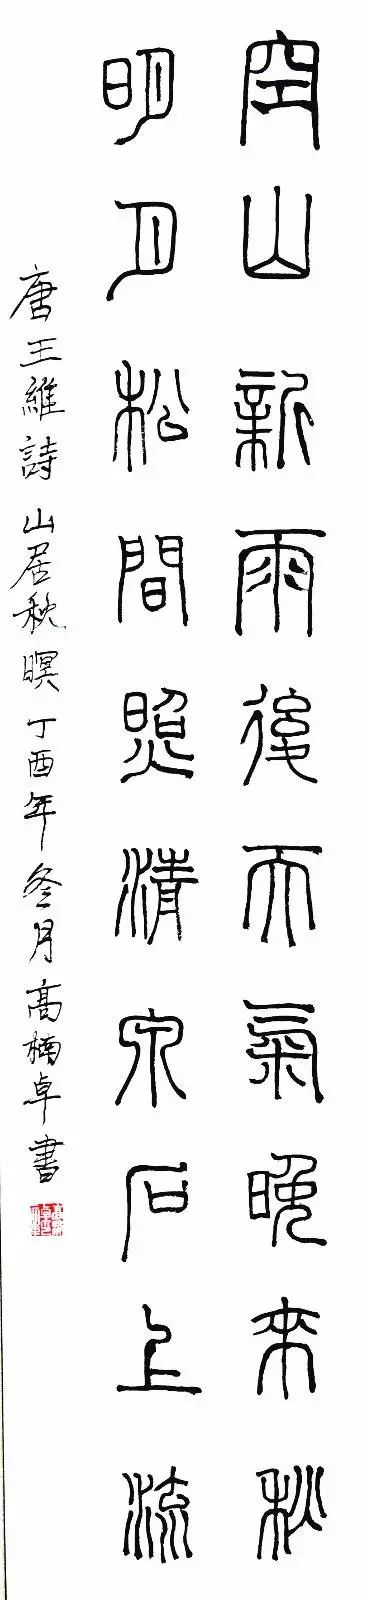 空山新雨後天氣晚來秋
明月松間照清泉石上流
唐王維詩山居秋暝丁酉年冬月高楠卓書